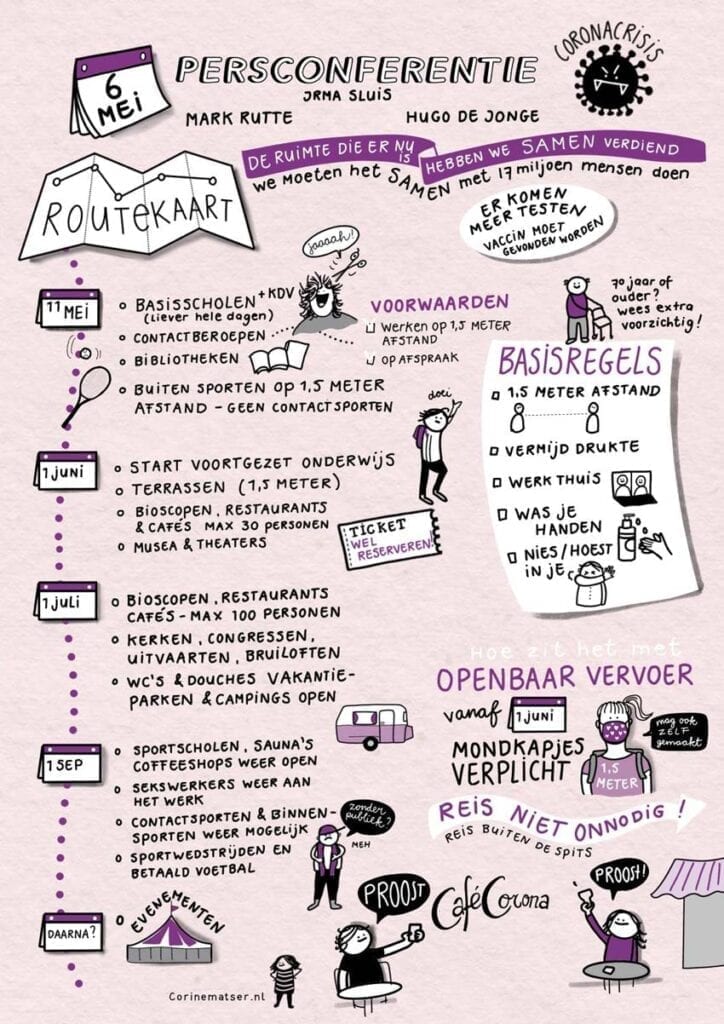 6
MEI
PERSCONFERENTIE
IRMA SLUIS
MARK RUTTE
HUGO DE JONGE
CORONACRISIS
DE RUIMTE DIE ER NU IS
HEBBEN WE SAMEN VERDIEND
we moeten het SAMEN met 17 miljoen mensen doen
ROUTEKAART
ER KOMEN
MEER TESTEN
VACCIN MOET
GEVONDEN WORDEN
11 MEI
BASISSCHOLEN + KDV
(liever hele dagen)
CONTACTBEROEPEN
BIBLIOTHEKEN
BUITEN SPORTEN OP 1,5 METER
AFSTAND - GEEN CONTACTSPORTEN
jaaaah!
VOORWAARDEN
Werken op 1,5 METER
AFSTAND
OP AFSPRAAK
70 jaar of
ouder?
wees extra
voorzichtig!
BASISREGELS
1,5 METER AFSTAND
VERMIJD DRUKTE
WERK THUIS
WAS JE
HANDEN
NIES/HOEST
IN JE
doei
1 JUNI
START VOORTGEZET ONDERWIJS
TERRASSEN (1,5 METER)
BIOSCOPEN, RESTAURANTS
& CAFÉS MAX 30 PERSONEN
MUSEA & THEATERS
TICKET
WEL
RESERVEREN!
1 JULI
BIOSCOPEN, RESTAURANTS
CAFÉS - MAX 100 PERSONEN
KERKEN, CONGRESSEN,
UITVAARTEN, BRUILOFTEN
WC'S & DOUCHES VAKANTIE-
PARKEN & CAMPINGS OPEN
Hoe zit het met
OPENBAAR VERVOER
vanaf
1 JUNI
MONDKAPJES
VERPLICHT
mag ook
ZELF
gemaakt
1,5
METER
REIS NIET ONNODIG!
REIS BUITEN DE SPITS
1 SEP
SPORTSCHOLEN, SAUNA'S
COFFEESHOPS WEER OPEN
SEKSWERKERS WEER AAN
HET WERK
CONTACTSPORTEN & BINNEN-
SPORTEN WEER MOGELIJK
SPORTWEDSTRIJDEN EN
BETAALD VOETBAL
zonder
publiek?
MEH
DAARNA?
EVENEMENTEN
PROOST
Café Corona
PROOST!
Corinematser.nl